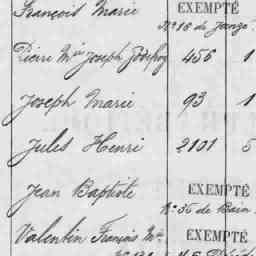 François Marie EXEMPTÉ
No 16 de Janzé
Pierre Mie Joseph Godefroy 456 1
Joseph Marie 93 1
Jules Henri 2101 5
Jean Baptiste EXEMPTÉ
No 35 de Bain
Valentin François Mie EXEMPTÉ